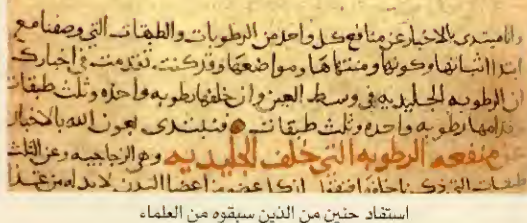 وانا مبتدى بالاخبار عن منافع كل واحد من الرطوبات والطبقات التى وصفنا مع
ابتدا اثباتها وكونها ومنتهاها ومواضعها وقد كنت تقدمت فى اخبارك
ان الرطوبه الجليديه فى وسط العين وان خلفها رطوبه واحده وثلث طبقات
قدامها رطوبه واحده وثلث طبقات فنبتدى بعون الله بالاخبار
عن منفعه الرطوبه التى خلف الجليديه وهى الزجاجيه وعن الثلث
طبقات التى خلفها عضو من اعضا البدن لابد له من غذا
استفاد حنين من الذين سبقوه من العلماء